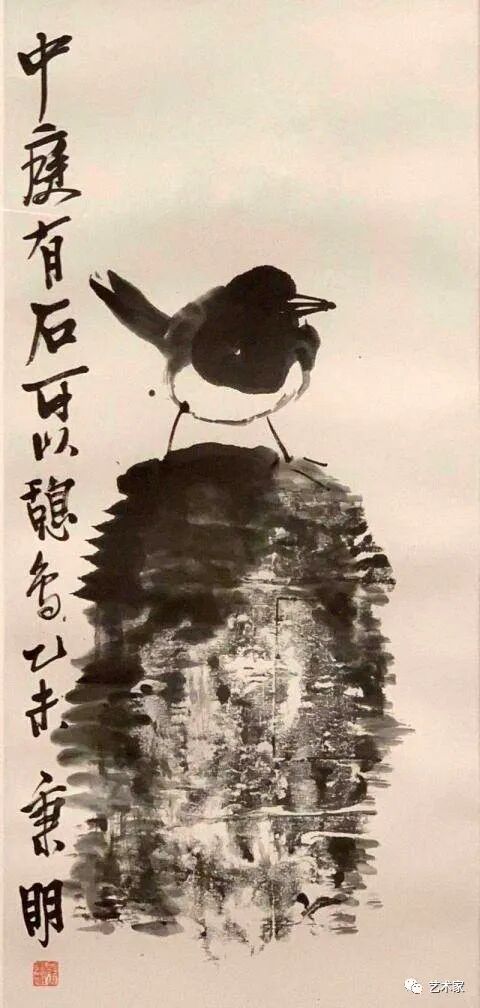 中庭有石可以憩鳥乙未秉明
艺术家